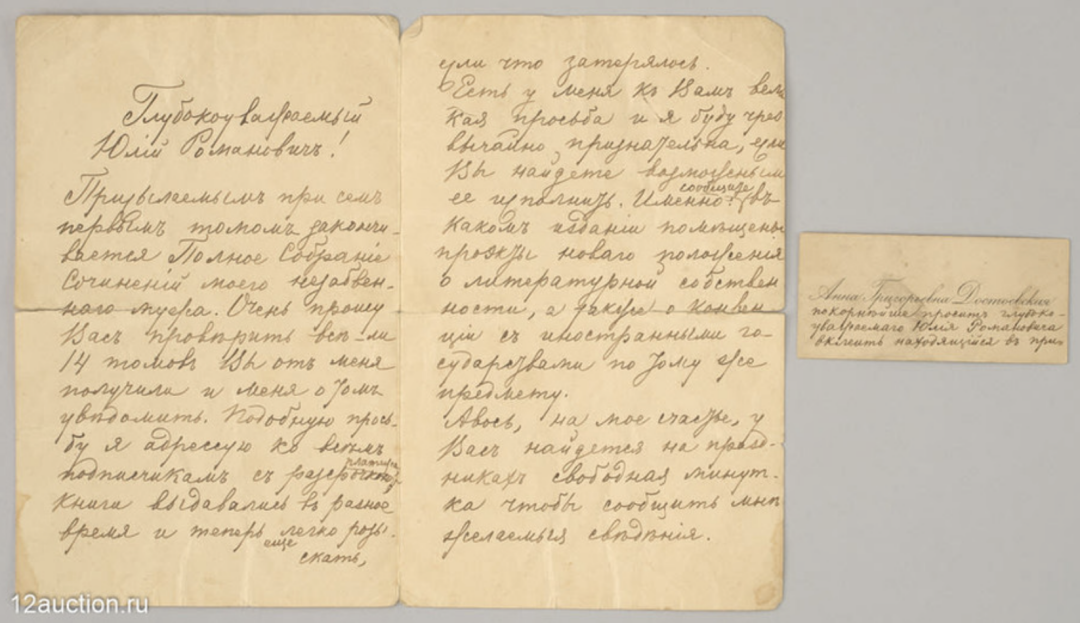 Глубокоуважаемый
Юлій Романовичъ!
Присылаемымъ при семъ
первымъ томомъ закончи-
вается Полное Собраніе
Сочиненій моего незабвен-
наго мужа. Очень прошу
Васъ провѣрить всѣ-ли
14 томовъ Вы отъ меня
получили и меня о томъ
увѣдомить. Подобную прось-
бу я адрессую ко всѣмъ
подписчикамъ съ разсрочкою
платежа,
книги выдавались въ разное
время и теперь легко разы-
еще
скать,
если что затерялось.
Есть у меня къ Вамъ вели
кая просьба и я буду чрез
вычайно признательна, если
Вы найдете возможнымъ
ее исполнить. Именно: въ
сообщите
какомъ изданіи помѣщены
проэкты новаго положенія
о литературной собствен
ности, а также о конвен
ціи съ иностранными го-
сударствами по тому же
предмету.
Авось, на мое счастье, у
Васъ найдется на празд-
никахъ свободная минут-
ка чтобы сообщить мнѣ
желаемыя свѣдѣнія.
Анна Григорьевна Достоевская
покорнѣйше проситъ глубоко-
уважаемаго Юлія Романовича
находящійся въ при-
12auction.ru